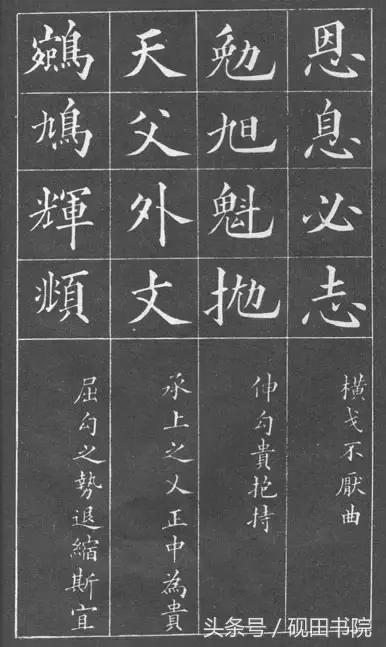 恩息必志
橫戈不厭曲
勉旭魁拋
伸勾貴抱持
天父外丈
承上之乂正中為貴
鵷鳩輝頫
屈勾之勢退縮斯宜
头条号 / 砚田书院